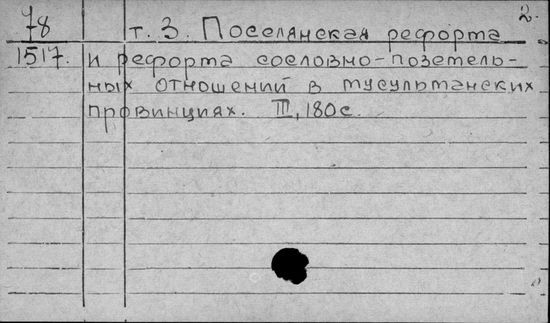 78 т. 3. Поселянская реформа 2.
1517. и реформа сословно-поземель-
ных отношений в мусульманских
провинциях. III, 180 с.